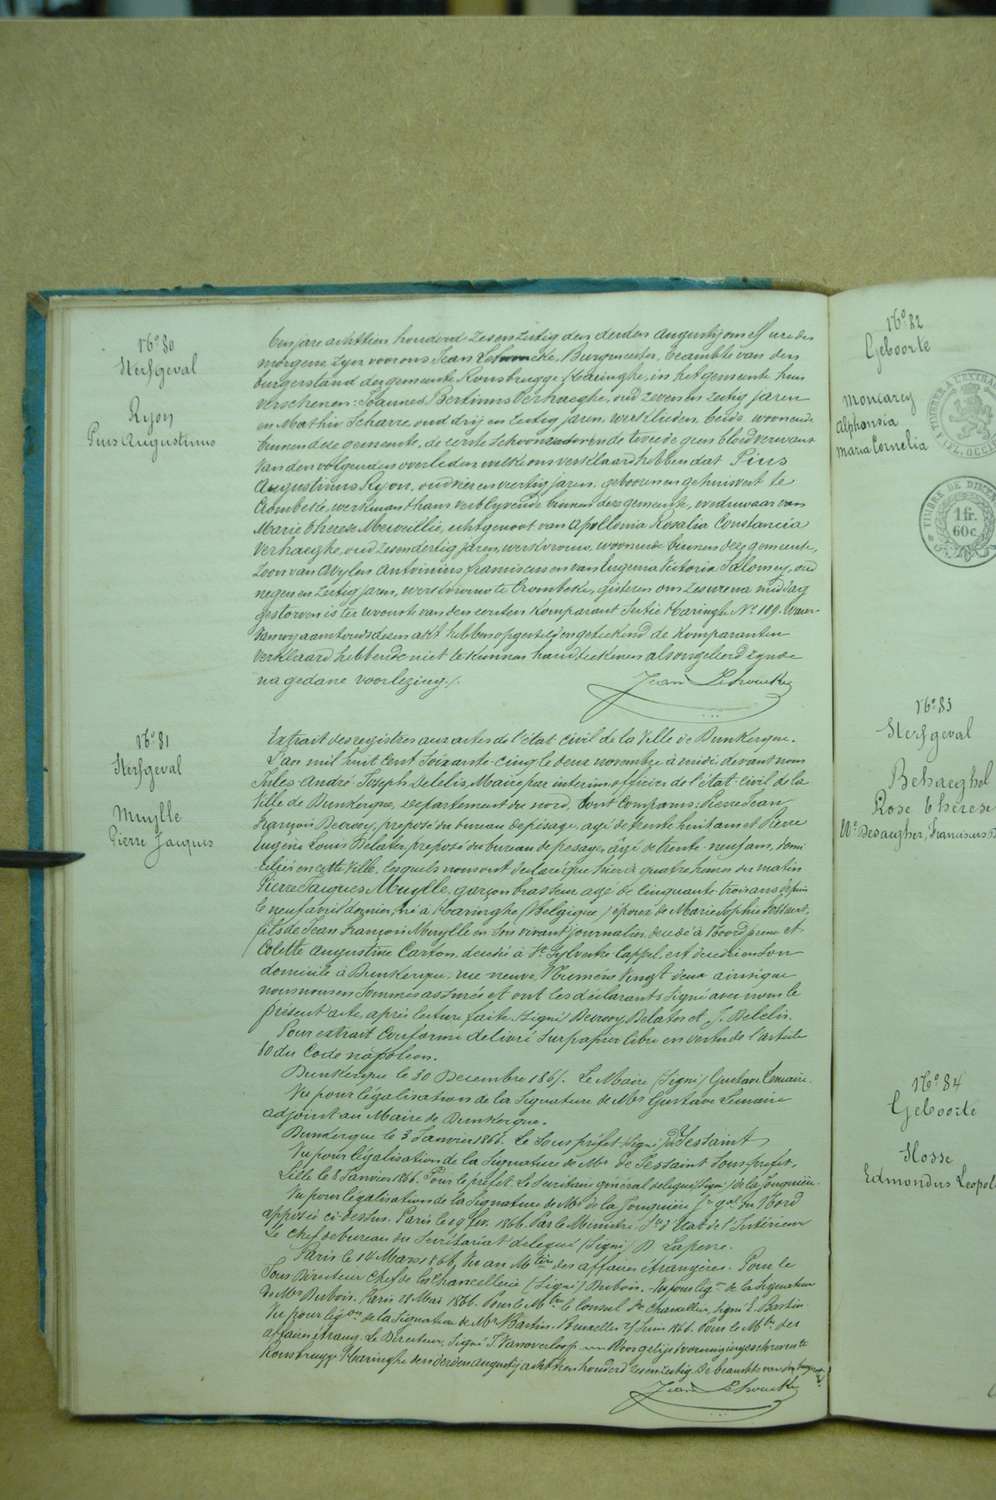 No 80
Sterfgeval
Ryon
Pius Augustinus
een jare achttien honderd zesenzestig den derden augusty om elf ure des
morgens zyn voor ons Jean Lehoucke, Burgmeester, beambte van den
burgerstand der gemeente Rousbrugge Haringhe, in het gemeente huis
verschenen: Joannes Bertinus Verhaeghe, oud zevenenzestig jaren
en Mathis Scharre oud drij en zestig jaren, werklieden, beide woonende
binnen deze gemeente, de eerste schoonvader en de tweede geen bloedverwant
van den volgenden overleden, welke ons verklaard hebben dat Pius
Augustinus Ryon, oud vierenveertig jaren, geboren en gehuisvest te
Crombeke, werkman thans verblyvende binnen deze gemeente, weduwaar van
Marie Therese Merveillie, echtgenoot van Apollonia Rosalia Constancia
Verhaeghe, oud zesendertig jaren, werkvrouw, woonende binnen deze gemeente,
zoon van wylen Antoninus franciscus en van Eugenia Victoria Salomey, oud
negenenzestig jaren, werkvrouw te Crombeke, gisteren om zes uren na middag
gestorven is ter woonste van den eersten komparant sectie Haringhe No 189. Waer
van wy aantonds desen akt hebben opgesteld en geteekend de komparanten
verklaard hebbende niet te kunnen handteekenen als ongeleerd zynde
na gedane voorlezing./.
Jean Lehoucke
No 81
Sterfgeval
Muylle
Pierre Jacques
Extrait des registres aux actes de l'état civil de la Ville de Dunkerque.
L'an mil huit cent soixante-cinq le deux novembre à midi devant nous
Jules André Joseph Delelis Maire par interim officier de l'état civil de la
Ville de Dunkerque, département du nord, sont comparus: Pierre Jean
François Decrooy, préposé du bureau de pesage, agé de trente huit ans et Pierre
Eugène Louis Delater, préposé du bureau de pesage, agé de trente-neuf ans, domi
ciliés en cette ville, lesquels nous ont declaré que hier à quatre heures du matin
Pierre Jacques Muylle, garçon brasseur agé de cinquante trois ans depuis
le neuf avril dernier, né à Haringhe (Belgique) époux de Marie Sophie
fils de Jean François Muylle en son vivant journalier, decedé à Noordpeene et
Colette Augustine Carton, decedée à St Sylvestre Cappel, est decedé en son
domicile à Dunkerque, rue neuve, Numéro vingt deux ainsi que
nous nous en sommes assurés et ont les déclarants signé avec nous le
présent acte, après lecture faite. Signé Decrooy, Delater et J. Delelis.
Pour extrait conforme delivré sur papier libre en vertu de l'article
80 du Code napoleon.
Dunkerque le 30 Decembre 1865. Le Maire (Signé) Gustave Lemaire.
Vu pour légalisation de la signature de Mr Gustave Lemaire
adjoint au Maire de Dunkerque.
Dunkerque le 3 Janvier 1866. Le Sous préfet (signé) de Jessaint
Vu pour légalisation de la signature de Mr de Jessaint sous préfet.
Lille le 8 Janvier 1866. Pour le préfet le Secrétaire général delegué (signé) de la Jonquière.
Vu pour légalisation de la signature de Mr de la Jonquière Sre gal du Nord
apposée ci-dessus. Paris le 19 fev. 1866. Par le Ministre Sre d'Etat de l'Intérieur
Le chef de bureau du Secrétariat delegué (Signé) D. Lapierre.
Paris le 14 Mars 1866. Vu au Mtère des affaires étrangères. Pour le
Sous Directeur chef de la Chancellerie (Signé) Dubois. Vu pour lég. de la signature
de Mr Dubois. Paris 28 Mai 1866. Pour le Mtre le Consul de Chancellier, signé E. Bastin
Vu pour légon de la signature de Mr Bastin. Bruxelles 25 Juin 1866. Pour le Mtre des
affaires étrang. Le Directeur, signé S. Vanoverloop. Voor gelijkvormig ingeschreven te
Rousbrugge Haringhe den derden augusty achttienhonderd zesenzestig. De beambte van den burgerstand
Jean Lehoucke
No 82
Geboorte
Moncarey
Alphonsia
Maria Cornelia
TIMBRE DE DIMEN
1 fr.
60 c.
No 83
Sterfgeval
Behaeghel
Rose Thérèse
We Desaegher, Franciscus
No 84
Geboorte
Hosse
Edmondus Leopol